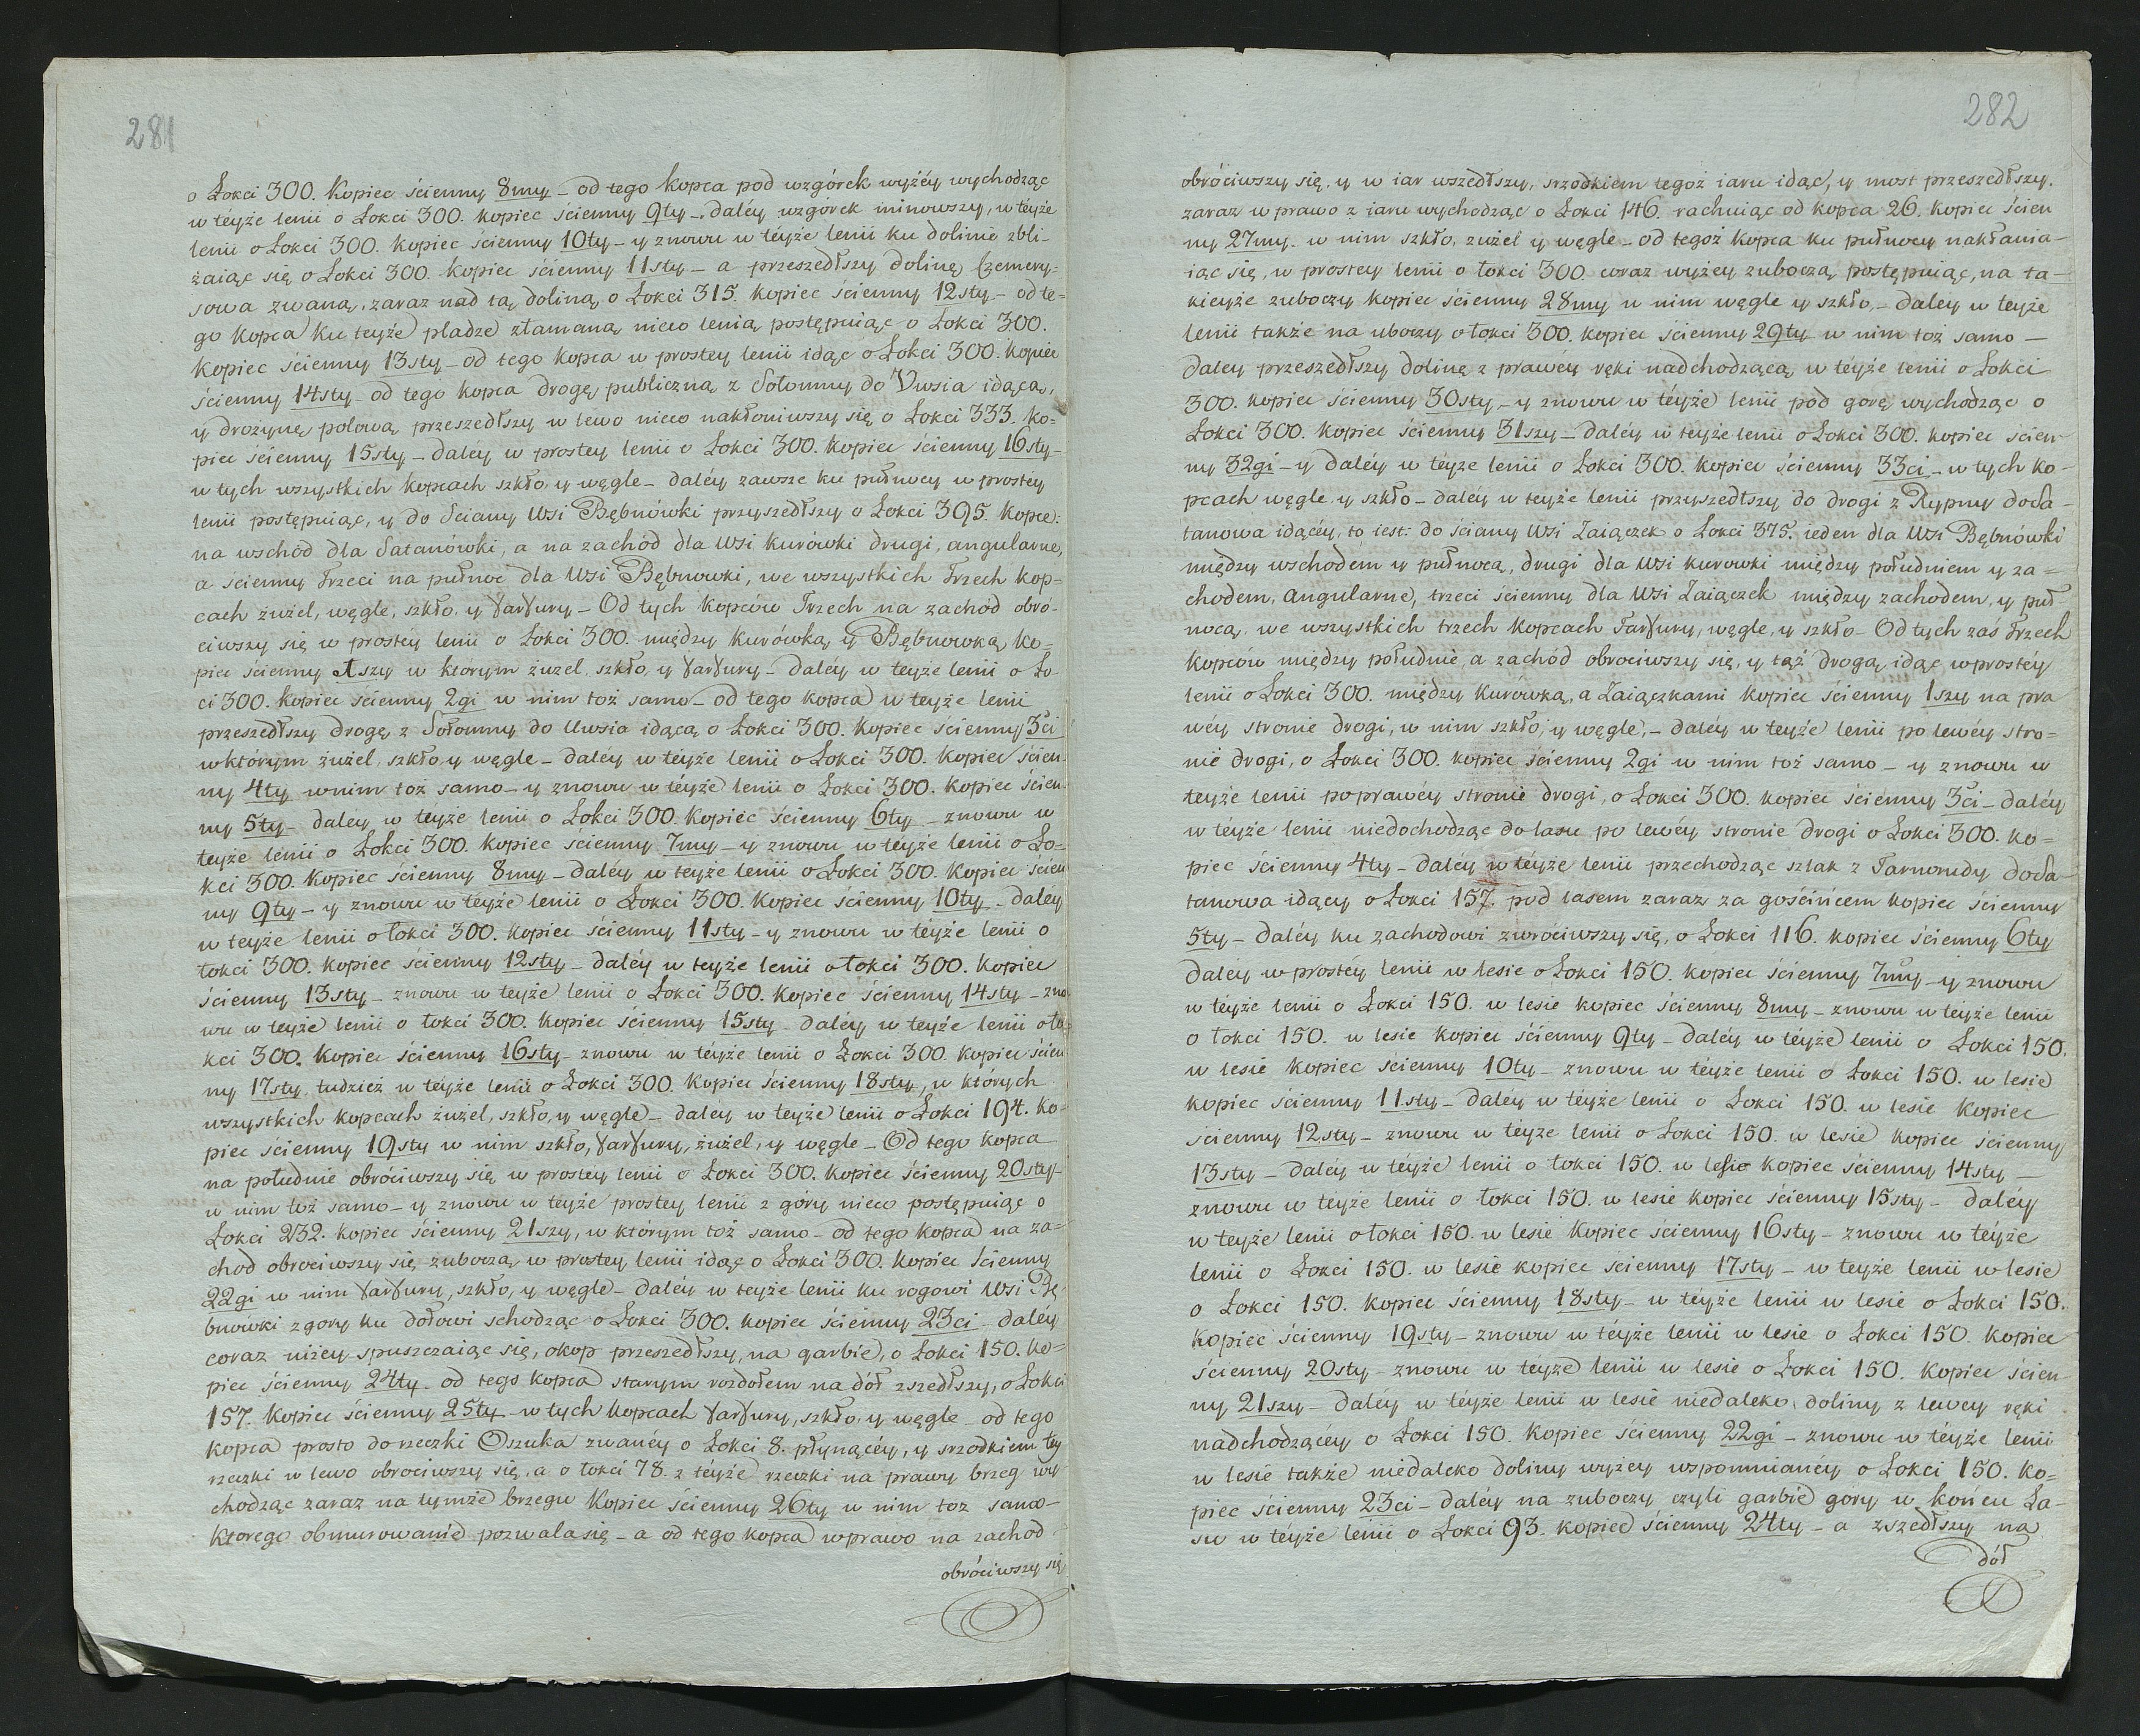 281
o Łokci 300. Kopiec ścienny 8my – od tego kopca pod wzgórek wyżéy wychodząc
w téyże lenii o Łokci 300. kopiec ścienny 9ty – daléy wzgórek minowszy, w téyże
lenii o Łokci 300. kopiec ścienny 10ty – y znowu w téyże lenii ku dolinie zbli-
żaiąc się o Łokci 300. kopiec ścienny 11sty – a przeszedłszy dolinę Czemery-
sowa zwaną, zaraz nad tą doliną o Łokci 315. kopiec ścienny 12sty – od te-
go kopca ku teyże pladze złamaną nieco lenią postępuiąc o Łokci 300.
Kopiec ścienny 13sty – od tego kopca w prostey lenii idąc o Łokci 300. kopiec
ścienny 14sty – od tego kopca drogę publiczną z Sołomny do Uwsia idącą,
y drożynę polową przeszedłszy w lewo nieco nakłoniwszy się o Łokci 333. ko-
piec ścienny 15sty – daley w prostey lenii o Łokci 300. kopiec ścienny 16sty –
w tych wszystkich kopcach szkło, y węgle – daléy zawsze ku pułnocy w prostéy
lenii postępuiąc, y do Sciany Wsi Bębnówki przyszedłszy o Łokci 395. kopce:
na wschód dla Satanówki, a na zachód dla Wsi Kurówki drugi, angularne,
a scienny Trzeci na pułnoc dla Wsi Bębnowki, we wszystkich Trzech kop-
cach żużel, węgle, szkło, y farfury – Od tych kopców Trzech na zachód obró-
ciwszy się w prostey lenii o Łokci 300. między Kurówką y Bębnowką ko-
piec ścienny 1szy w którym żużel, szkło, y farfury – daléy w teyże lenii o Ło-
ci 300. kopiec scienny 2gi w nim toż samo – od tego kopca w teyże lenii
przeszedłszy drogę z Sołomny do Uwsia idącą o Łokci 300. kopiec ścienny 3ci
w którym żużel, szkło, y węgle – daléy w téyże lenii o Łokci 300. kopiec ścien-
ny 4ty w nim toż samo – y znowu w téyże lenii o Łokci 300. kopiec ścien-
ny 5ty – daley w téyże lenii o Łokci 300. kopiec ścienny 6ty – znowu w
teyże lenii o Łokci 300. kopiec ścienny 7my – y znowu w teyże lenii o Ło-
kci 300. kopiec ścienny 8my – daléy w teyże lenii o Łokci 300. kopiec ścien
ny 9ty – y znowu w téyże lenii o Łokci 300. kopiec ścienny 10ty – daléy
w teyże lenii o Łokci 300. kopiec ścienny 11sty – y znowu w téyże lenii o
Łokci 300. kopiec scienny 12sty – daléy w teyże lenii o Łokci 300. kopiec
ścienny 13sty – znowu w teyże lenii o Łokci 300. kopiec ścienny 14sty – zno
wu w teyże lenii o Łokci 300. kopiec ścienny 15sty – daléy w teyże lenii o Ło
kci 300. kopiec ścienny 16sty – znowu w téyże lenii o Łokci 300. kopiec ścien
ny 17sty tudzież w téyże lenii o Łokci 300. kopiec ścienny 18sty, w których
wszystkich kopcach żużel, szkło, y węgle – daléy w teyże lenii o Łokci 194. ko-
piec ścienny 19sty w nim szkło, farfury, żużel, y węgle – Od tego kopca
na południe obróciwszy się w prostey lenii o Łokci 300. kopiec ścienny 20sty –
w nim toż samo – y znowu w teyże prostey lenii z góry nieco postępuiąc o
Łokci 232. kopiec ścienny 21szy, w którym toż samo – od tego kopca na za-
chod obrociwszy się zuboczą w prostey lenii idąc o Łokci 300. kopiec ścienny
22gi w nim farfury, szkło, y węgle – daléy w teyże lenii ku rogowi Wsi Bę-
bnówki z gory ku dołowi schodząc o Łokci 300. kopiec ścienny 23ci – daléy
coraz niżey spuszczaiąc się, okop przeszedłszy, na garbie, o Łokci 150. ko-
piec ścienny 24ty – od tego kopca starym rozdołem na dół zszedłszy, o Łokci
157. kopiec ścienny 25ty – w tych kopcach farfury, szkło, y węgle – od tego
kopca prosto do rzeczki Oszuka zwanéy o Łokci 8. płynącéy, y srzodkiem tey
rzeczki w lewo obrociwszy się, a o Łokci 78. z téyże rzeczki na prawy brzeg wy-
chodząc zaraz na tymże brzegu kopiec ścienny 26ty w nim toz samo –
ktorego obmurowanie pozwala się – a od tego kopca w prawo na zachod
obróciwszy się
282
obróciwszy się, y w iar wszedłszy, srzodkiem tegoż iaru idąc, y most przeszedłszy.
zaraz w prawo z iaru wychodząc o Łokci 146. rachuiąc od kopca 26. kopiec ścien
ny 27my. w nim szkło, zużel y węgle – od tegoż kopca ku pułnocy nakłania-
iąc się, w prostey lenii o Łokci 300 coraz wyżey zuboczą postępuiąc, na ta-
kieyże zuboczy kopiec ścienny 28my w nim węgle y szkło, – daley w teyże
lenii także na uboczy o Łokci 300. kopiec ścienny 29ty w nim toż samo –
daley przeszedłszy dolinę z prawéy ręki nadchodzącą w téyże lenii o Łokci
300. kopiec ścienny 30sty – y znowu w téyże lenii pod gorę wychodząc o
Łokci 300. kopiec ścienny 31szy – daléy w teyże lenii o Łokci 300. kopiec scien-
ny 32gi – y daléy w téyze lenii o Łokci 300. kopiec ścienny 33ci – w tych ko-
pcach węgle, y szkło – daléy w teyże lenii przyszedłszy do drogi z Rypny do Sa-
tanowa idącéy, to iest: do ściany Wsi Zaiączek o Łokci 375. ieden dla Wsi Bębnówki
między wschodem y pułnocą, drugi dla Wsi Kurowki między południem y za-
chodem, angularne, trzeci ścienny dla Wsi Zaiączek między zachodem, y puł-
nocą, we wszystkich trzech kopcach Farfury, węgle, y szkło – Od tych zaś Trzech
Kopców między południe, a zachód obrociwszy się, y tąż drogą idąc w prostéy
lenii o Łokci 300. między Kurówką, a Zaiączkami kopiec ścienny 1szy na pra
wéy stronie drogi, w nim szkło, y węgle, – daléy w teyże lenii po lewéy stro-
nie drogi, o Łokci 300. kopiec ścienny 2gi w nim toż samo – y znowu w
teyże lenii po prawéy stronie drogi, o Łokci 300. kopiec ścienny 3ci – daléy
w téyże lenii niedochodząc do lasu po lewéy stronie drogi o Łokci 300. ko-
piec ścienny 4ty – daléy w téyże lenii przechodząc szlak z Tarnorudy do Sa-
tanowa idący o Łokci 157. pod lasem zaraz za gościńcem kopiec ścienny
5ty – daléy ku zachodowi zwróciwszy się, o Łokci 116. kopiec ścienny 6ty
daléy w prostéy lenii w lesie o Łokci 150. kopiec ścienny 7my – y znowu
w téyże lenii o Łokci 150. w lesie kopiec ścienny 8my – znowu w teyże lenii
o Łokci 150. w lesie kopiec ścienny 9ty – daléy w téyże lenii o Łokci 150.
w lesie kopiec ścienny 10ty – znowu w téyże lenii o Łokci 150. w lesie
kopiec ścienny 11sty – daley w téyże lenii o Łokci 150. w lesie kopiec
ścienny 12sty – znowu w téyze lenii o Łokci 150. w lesie kopiec ścienny
13sty – daléy w téyże lenii o Łokci 150. w lesie kopiec ścienny 14sty –
znowu w teyże lenii o Łokci 150. w lesie kopiec ścienny 15sty – daléy
w teyże lenii o Łokci 150. w lesie kopiec ścienny 16sty – znowu w téyże
lenii o Łokci 150. w lesie kopiec scienny 17sty – w teyże lenii w lesie
o Łokci 150. kopiec ścienny 18sty – w téyże lenii w lesie o Łokci 150.
kopiec ścienny 19sty – znowu w téyże lenii w lesie o Łokci 150. kopiec
ścienny 20sty – znowu w téyże lenii w lesie o Łokci 150. kopiec ścien
ny 21szy – daléy w téyże lenii w lesie niedaleko doliny z lewey ręki
nadchodzącéy o Łokci 150. kopiec ścienny 22gi – znowu w téyże lenii
w lesie także niedaleko doliny wyżey wspomnianéy o Łokci 150. ko-
piec ścienny 23ci – daléy na zuboczy czyli garbie góry w końcu La-
su w teyże lenii o Łokci 93. kopiec ścienny 24ty – a zszedłszy na
dół